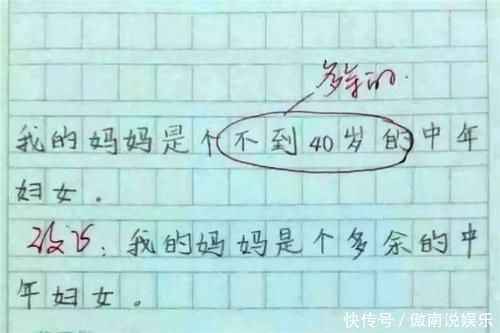 多余的.
我的妈妈是个不到40岁的中年
妇女.
改为:我的妈妈是个多余的中
年妇女。
快传号/傲南说娱乐